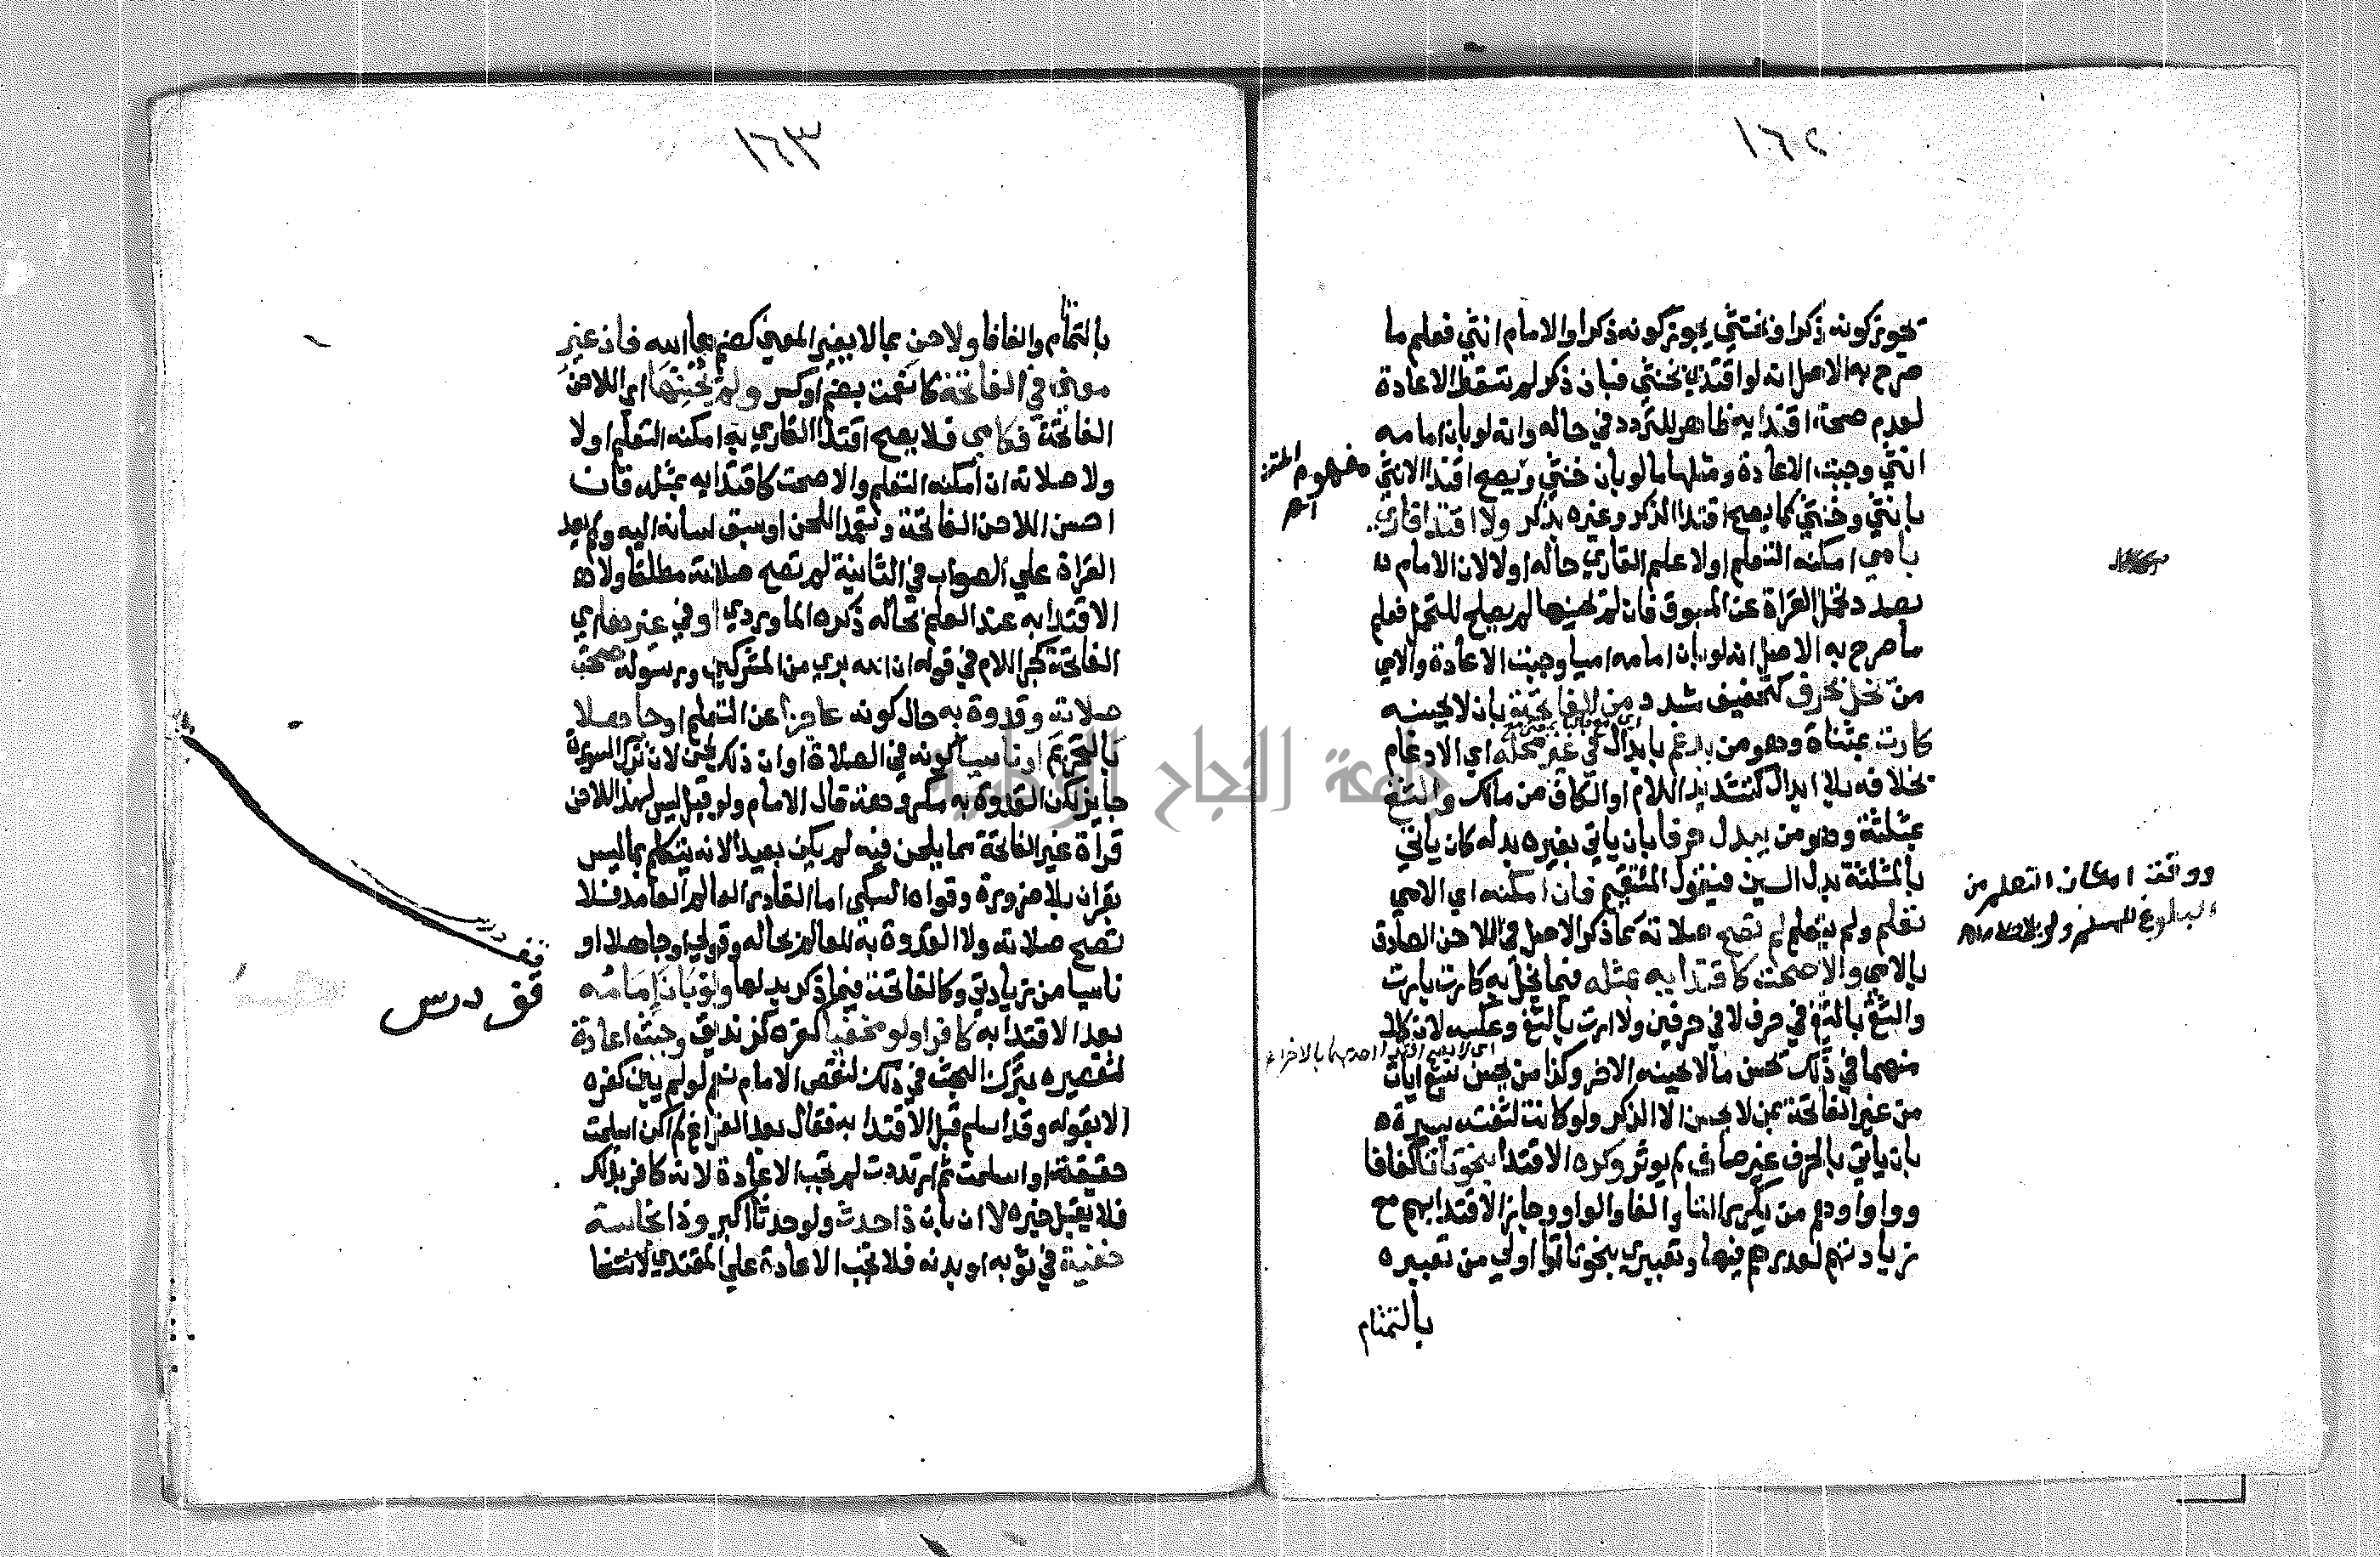 ١٦٢
تجويز كونه ذكرا وخنثي بخنثي يجوز كونه ذكرا والامام انثي فعلم ما
صرح به الاصل انه لو اقتدي بخنثي فبان ذكر لم تسقط الاعادة
لعدم صحة اقتدايه ظاهر للتردد في حاله وانه لو بان امامه
انثي وجبت الاعادة ومثلها ما لو بان خنثي ويصح اقتدا الانثي
بانثي وخنثي كما يصح اقتدا الذكر وغيره بذكر ولا اقتدا قاري
بامي امكنه التعلم او لا علم القاري حاله او لا لان الامام
بصدد تحمل القراة عن المسبوق فان لم يحسنها لم يصلح للتحمل فعلم
ما صرح به الاصل انه لو بان امامه اميا وجبت الاعادة والامي
من يخل بحرف كتخفيف مشدد من الفاتحة بان لا يحسنه
كارت بمثناة وهو من يدغم بابدال في غير محله اي الادغام
بخلافه بلا ابدال كتشديد اللام او الكاف من مالك والثغ
بمثلثة وهو من يبدل حرفا بان ياتي بغيره بدله كان ياتي
بالمثلثة بدل السين فيقول المثتقيم فان امكنه اي الامي
تعلم ولم يتعلم لم تصح صلاته كما ذكر الاصل في اللاحن الصادق
بالامي والا صحت كاقتدايه بمثله فيما يخل به كارت بارت
والثغ بالثغ في حرف لا في حرفين ولا ارت بالثغ وعكسه لان كلا
منهما في ذلك يحسن ما لا يحسنه الاخر وكذا من يحسن سبع ايات
من غير الفاتحة بمن لا يحسن الا الذكر ولو كانت لثغته يسيرة
بان ياتي بالحرف غير صاف لم يوثر وكره الاقتدا بنحو تاتا كفافا
وواوا وهم من يكرر التا والفا والواو وجاز الاقتدا بهم مع
زيادتهم لعذرهم فيها وتعبيري بنحو تاتا اولي من تعبيره
بالتمتام
مفهوم المتن
اهر
ووقت امكان التعلم من
البلوغ للمسلم
اي لا يصح اقتدا احدهما بالاخر
١٦٣
بالتمتام والفافا ولاحن بما لا يغير المعني كضم هاء لله فان غير
معني في الفاتحة كانعمت بضم او كسر ولم يحسنها اي اللاحن
الفاتحة فكامي فلا يصح اقتدا القاري به امكنه التعلم او لا
ولا صلاته ان امكنه التعلم والا صحت كاقتدايه بمثله فان
احسن اللاحن الفاتحة وتعمد اللحن او سبق لسانه اليه ولم يعد
القراة علي الصواب في الثانية لم تصح صلاته مطلقا ولا
الاقتدا به عند العلم بحاله ذكره الماوردي او في غير معاري
الفاتحة كجر اللام في قوله ان الله بري من المشركين ورسوله صحت
صلاته وقدوة به حال كونه عاجزا عن التعلم او جاهلا
بالتحريم او ناسيا كونه في الصلاة او ان ذلك لحن لان ترك السورة
جايز لكن القدوة به مكروهة قال الامام ولو قيل ليس لهذا اللاحن
قراة غير الفاتحة مما يلحن فيه لم يكن بعيدا لانه يتكلم بما ليس
بقران بلا ضرورة وقواه السبكي اما القادر العالم العامد فلا
تصح صلاته ولا القدوة به للعالم بحاله وقولي او جاهلا او
ناسيا من زيادتي وكالفاتحة فيما ذكر بدلها ولو بان امامه
بعد الاقتدا به كافرا ولو مخفيا كفره كزنديق وجبت اعادة
لتقصيره بترك البحث في ذلك لنقص الامام نعم لو لم يبين كفره
الا بقوله وقد اسلم قبل الاقتدا به فقال بعد الفراغ لم اكن اسلمت
حقيقة او اسلمت ثم ارتددت لم تجب الاعادة لانه كافر بذلك
فلا يقبل خبره لا ان بان ذا حدث ولو حدثا اكبر وذا نجاسة
خفية في ثوبه او بدنه فلا تجب الاعادة علي المقتدي لانتفا
درس
قف
قف درس
جامعة النجاح الوطنية